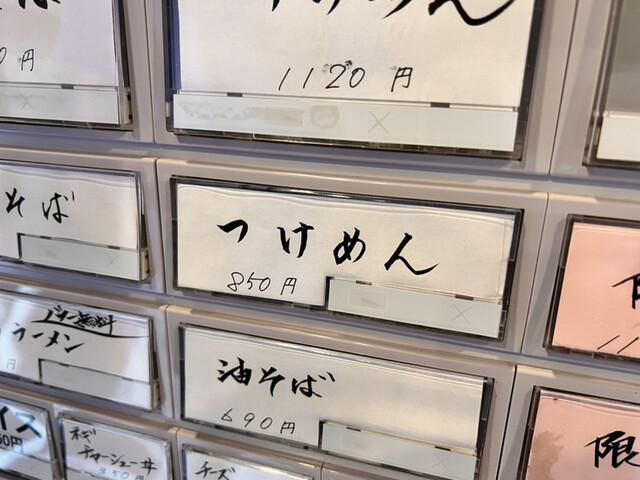 けめん
1120円
0円
そば
つけめん
850円
ラーメン
油そば
690円
ネギ
チャーシュー丼
350円
チーズ
イス
50円
限